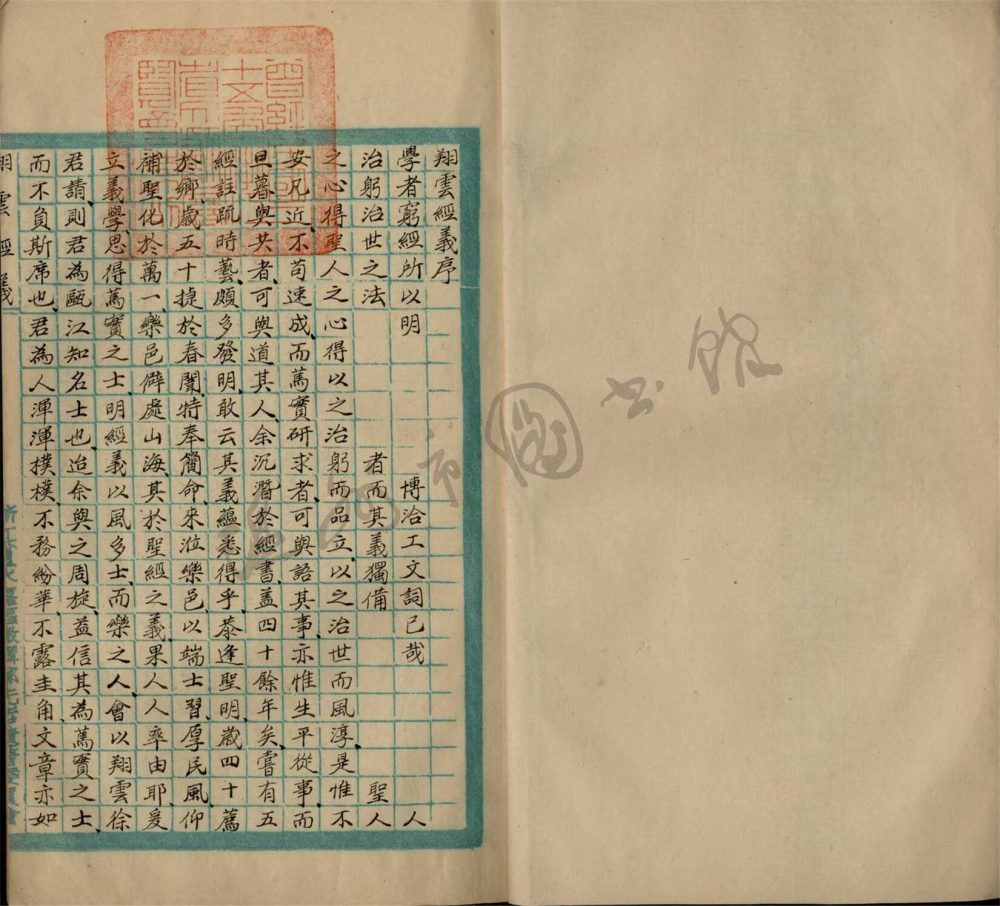 翔雲經義序
學者窮經所以明 博洽工文詞已哉 人
治躬治世之法 者而其義獨備 聖人
之心得聖人之心得以之治躬而品立以之治世而風淳是惟不
安凡近不苟速成而篤實研求者可與語其事亦惟生平從事而
旦暮與共者可與道其人余沉潛於經書蓋四十餘年矣嘗有五
經註疏時藝頗多發明敢云其義蘊悉得乎恭逢聖明歲四十薦
於鄉歲五十捷於春闈特奉簡命來涖樂邑以端士習厚民風仰
補聖化於萬一樂邑僻處山海其於聖經之義果人人率由耶爰
立義學思得篤實之士明經義以風多士而樂之人會以翔雲徐
君請則君為甌江知名士也迨余與之周旋益信其為篤實之士
而不負斯席也君為人渾渾樸樸不務紛華不露圭角文章亦如
翔雲經義
圖書館